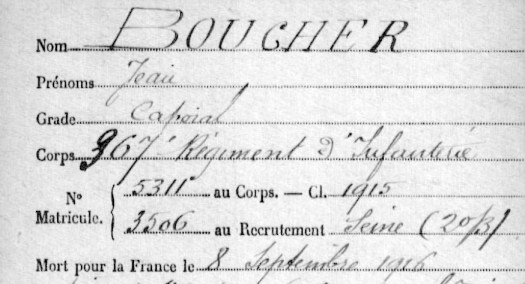 Nom BOUCHER
Prénoms Jean
Grade Caporal
Corps 367e Régiment d'Infanterie
N° Matricule. 5311 au Corps. — Cl. 1915
3506 au Recrutement Seine (20/3)
Mort pour la France le 8 Septembre 1916